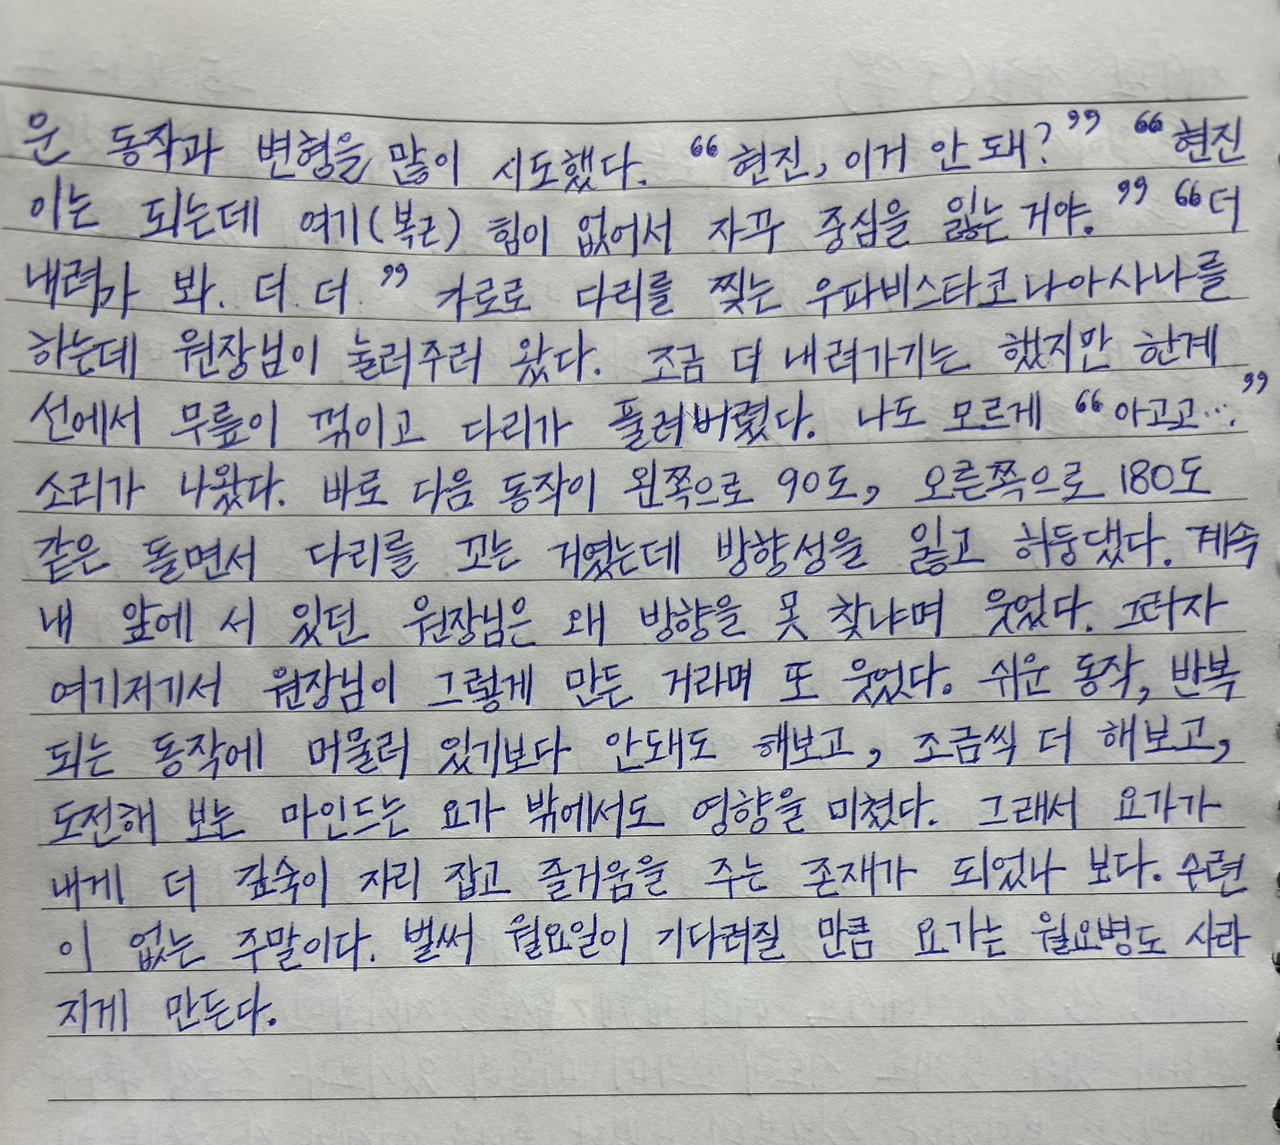 운 동작과 변형을 많이 시도했다. “현진, 이거 안 돼?” “현진
이는 되는데 여기(복근) 힘이 없어서 자꾸 중심을 잃는 거야.” “더
내려가 봐. 더. 더.” 가로로 다리를 찢는 우파비스타코나아사나를
하는데 원장님이 눌러주러 왔다. 조금 더 내려가기는 했지만 한계
선에서 무릎이 꺾이고 다리가 풀려버렸다. 나도 모르게 “아고고…”
소리가 나왔다. 바로 다음 동작이 왼쪽으로 90도, 오른쪽으로 180도
같은 돌면서 다리를 꼬는 거였는데 방향성을 잃고 허둥댔다. 계속
내 앞에 서 있던 원장님은 왜 방향을 못 찾냐며 웃었다. 그러자
여기저기서 원장님이 그렇게 만든 거라며 또 웃었다. 쉬운 동작, 반복
되는 동작에 머물러 있기보다 안돼도 해보고, 조금씩 더 해보고,
도전해 보는 마인드는 요가 밖에서도 영향을 미쳤다. 그래서 요가가
내게 더 깊숙이 자리 잡고 즐거움을 주는 존재가 되었나 보다. 수련
이 없는 주말이다. 벌써 월요일이 기다려질 만큼 요가는 월요병도 사라
지게 만든다.